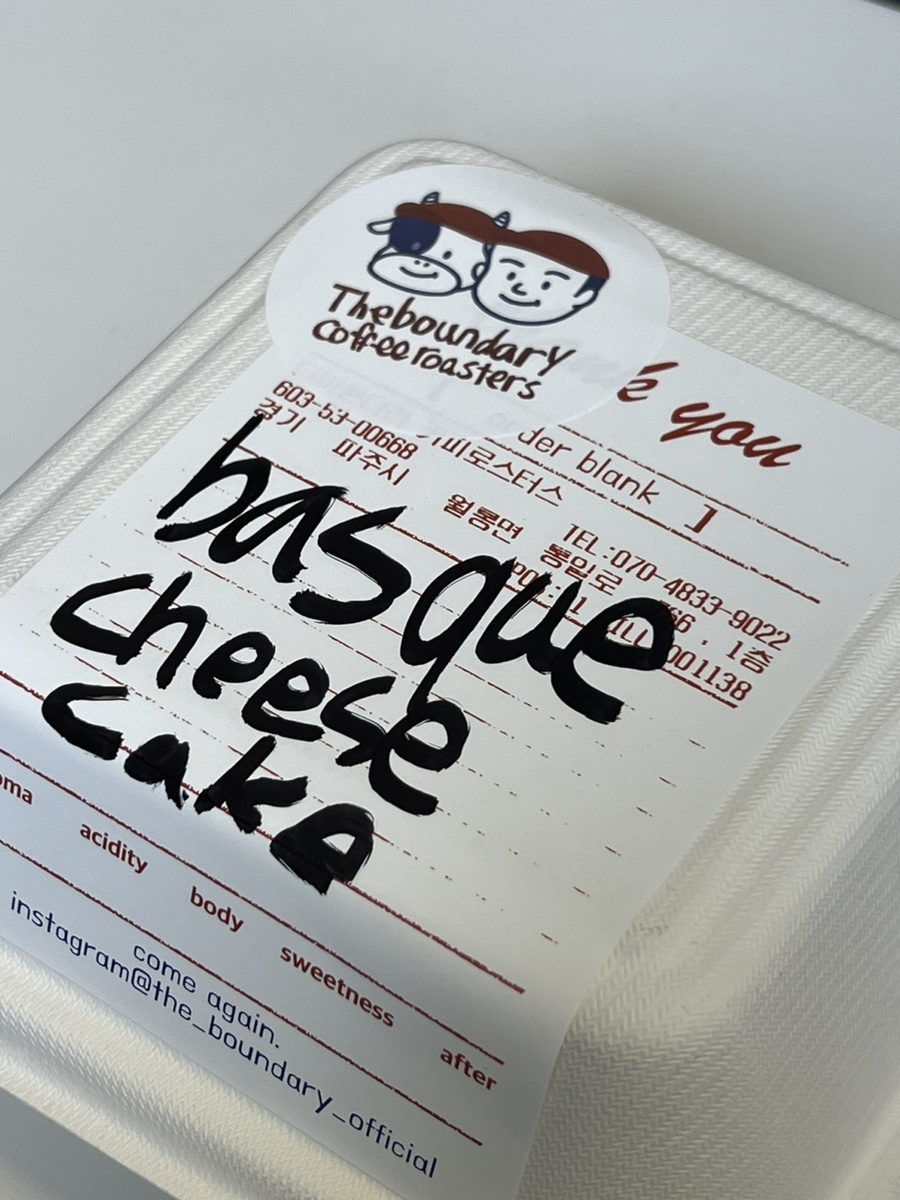 Theboundary
Coffee roasters
you
order blank
1
603-53-00668
로스터스
TEL:070-4833-9022
경기 파주시 월롱면 통일로 1층
001138
basque
cheese
cake
acidity body sweetness after
come again.
instagram@the_boundary_official